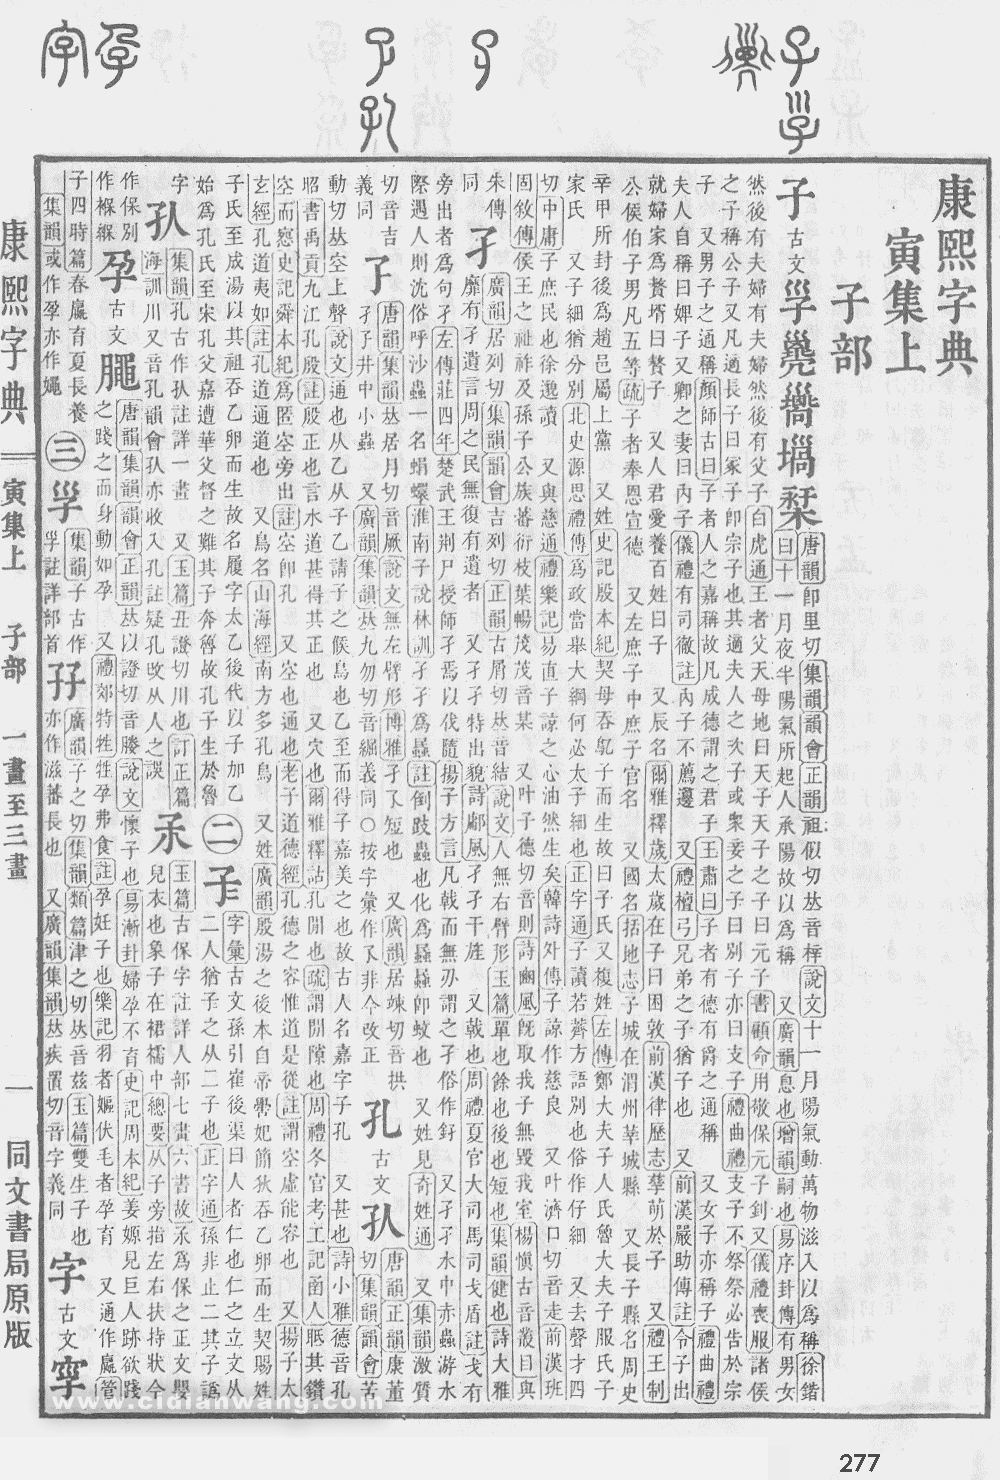 康熙字典
寅集上
子部
子 古文 𡿹 唐韻卽里切集韻韻會正韻祖似切𠀤音梓說文十一月陽氣動萬物滋入以爲稱徐鍇
曰十一月夜半陽氣所起人承陽故以爲稱 又廣韻息也增韻嗣也易序卦傳有男女
然後有夫婦有夫婦然後有父子白虎通王者父天母地曰天子天子之子曰元子書顧命用敬保元子釗又儀禮喪服諸侯
之子稱公子又凡適長子曰冢子卽宗子也其適夫人之次子或衆妾之子曰別子亦曰支子禮曲禮支子不祭祭必告於宗
子 又男子之通稱顏師古曰子者人之嘉稱故凡成德謂之君子王肅曰子者有德有爵之通稱 又女子亦稱子禮曲禮
夫人自稱曰婢子又卿之妻曰內子儀禮有司徹註內子不薦籩 又禮檀弓兄弟之子猶子也 又前漢嚴助傳註令子出
就婦家爲贅壻曰贅子 又人君愛養百姓曰子 又辰名爾雅釋歲太歲在子曰困敦前漢律歷志孳萌於子 又禮王制
公侯伯子男凡五等疏子者奉恩宣德 又左庶子中庶子官名 又國名括地志子城在渭州莘城縣 又長子縣名周史
辛甲所封後爲趙邑屬上黨 又姓史記殷本紀契母吞鳦子而生故曰子氏又複姓左傳鄭大夫子人氏魯大夫子服氏子
家氏 又子細猶分別北史源思禮傳爲政當舉大綱何必太子細也正字通子讀若薺方語別也俗作仔細 又去聲才四
切中庸子庶民也徐邈讀 又與慈通禮樂記易直子諒之心油然生矣韓詩外傳子諒作慈良 又叶濟口切音走前漢班
固敘傳侯王之祉祚及孫子公族蕃衍枝葉暢茂茂音某 又叶子德切音則詩豳風旣取我子無毀我室楊愼古音叢目與
朱傳
同 孑 廣韻居列切集韻韻會吉列切正韻古屑切𠀤音結說文人無右臂形玉篇單也餘也後也短也集韻健也詩大雅
靡有孑遺言周之民無復有遺者 又孑孑特出貌詩鄘風孑孑干旄 又戟也周禮夏官大司馬司戈盾註戈有
旁出者爲句孑左傳莊四年楚武王荆尸授師孑焉以伐隨揚子方言凡戟而無刃謂之孑俗作釨 又孑孑水中赤蟲游水
際遇人則沈俗呼沙蟲一名蜎蠉淮南子說林訓孑孑爲蟁註倒跂蟲也化爲蟁蟁卽蚊也 又姓見奇姓通 又集韻激質
切音吉
義同 孒 唐韻集韻𠀤居月切音厥說文無左臂形博雅孑孒短也 又廣韻居竦切音拱
孑孑井中小蟲 又廣韻集韻𠀤九勿切音綛義同○按字彙作孓非今改正
孔 古文 𡥆 唐韻正韻康董切集韻韻會苦
動切𠀤空上聲說文通也从乙从子乙請子之候鳥也乙至而得子嘉美之也故古人名嘉字子孔 又甚也詩小雅德音孔
昭書禹貢九江孔殷註殷正也言水道甚得其正也 又穴也爾雅釋詁孔閒也疏謂閒隙也周禮冬官考工記函人眡其鑽
空而惌史記舜本紀爲匿空旁出註空卽孔 又空也通也老子道德經孔德之容惟道是從註謂空虛能容也 又揚子太
玄經孔道夷如註孔道通道也 又鳥名山海經南方多孔鳥 又姓廣韻殷湯之後本自帝嚳妃簡狄吞乙卵而生契賜姓
子氏至成湯以其祖吞乙卵而生故名履字太乙後代以子加乙
始爲孔氏至宋孔父嘉遭華父督之難其子奔魯故孔子生於魯
二 㜽 字彙古文孫引崔後渠曰人者仁也仁之立文从
二人猶子之从二子也正字通孫非止二其子譌
字 㧈 集韻孔古作㧈註詳一畫 又玉篇丑證切川也訂正篇
海訓川又音孔韻會㧈亦收入孔註疑孔攺从人之誤
𡥀 玉篇古保字註詳人部七畫六書故𡥀爲保之正文嬰
兒衣也象子在裙襦中總要从子旁指左右扶持狀今
作保別
作褓緥 孕 古文 𪓝 唐韻集韻韻會正韻𠀤以證切音媵說文懷子也易漸卦婦孕不育史記周本紀姜嫄見巨人跡欲踐
之踐之而身動如孕 又禮郊特牲牲孕弗食註孕妊子也樂記羽者嫗伏毛者孕育 又通作𦣄管
子四時篇春𦣄育夏長養
集韻或作孕亦作䋲
三 𡥈 集韻子古作
𡥈註詳部首 孖 廣韻子之切集韻類篇津之切𠀤音兹玉篇雙生子也
亦作滋蕃長也 又廣韻集韻𠀤疾置切音字義同 字 古文 𡨦
康熙字典 寅集上 子部 一畫至三畫 一 同文書局原版
www.cidianwang.com
277